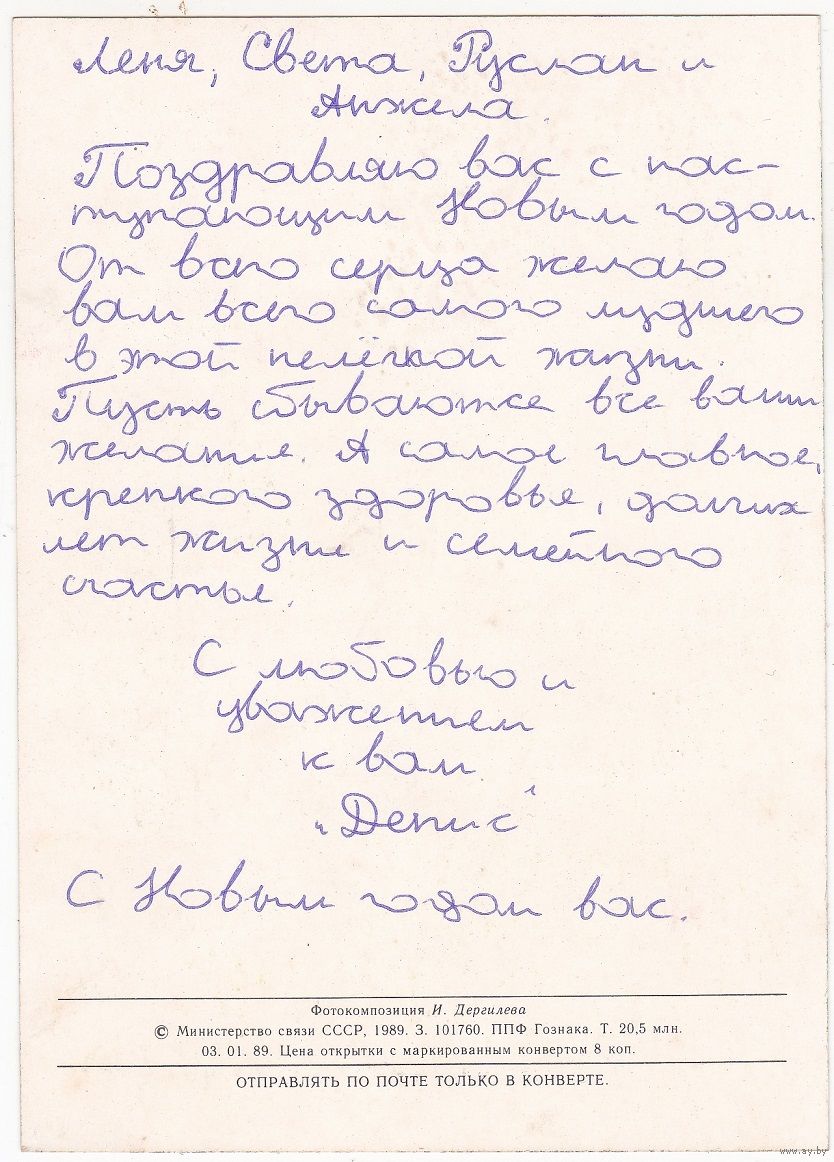 Леня, Света, Руслан и
Анжела.
Поздравляю вас с нас-
тупающим Новым годом.
От всего серца желаю
вам всего самого лудшего
в этой нелёгкой жизни.
Пусть сбываютже все ваши
желания. А самое главное,
крепкого здоровья, долгих
лет жизни и семейного
счастья.
С любовью и
уважением
к вам
"Денис"
С Новым годом вас.
Фотокомпозиция И. Дергилева
© Министерство связи СССР, 1989. З. 101760. ППФ Гознака. Т. 20,5 млн.
03. 01. 89. Цена открытки с маркированным конвертом 8 коп.
ОТПРАВЛЯТЬ ПО ПОЧТЕ ТОЛЬКО В КОНВЕРТЕ.
www.ay.by